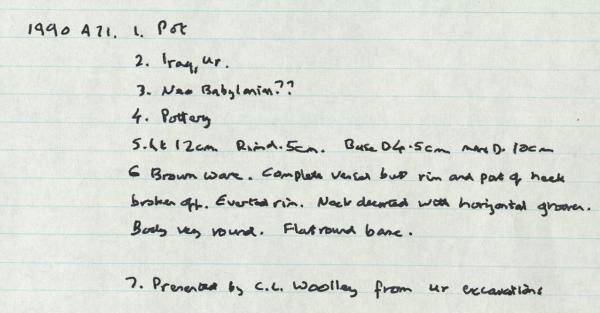 1990 A71. 1. Pot
2. Iraq, Ur.
3. Neo Babylonian??
4. Pottery
5. ht 12cm Rim d. 5cm. Base D 4.5cm max D. 10cm
6 Brown ware. Complete vessel but rim and part of neck
broken off. Everted rim. Neck decorated with horizontal grooves.
Body very round. Flat round base.
7. Presented by C.L. Woolley from Ur excavations